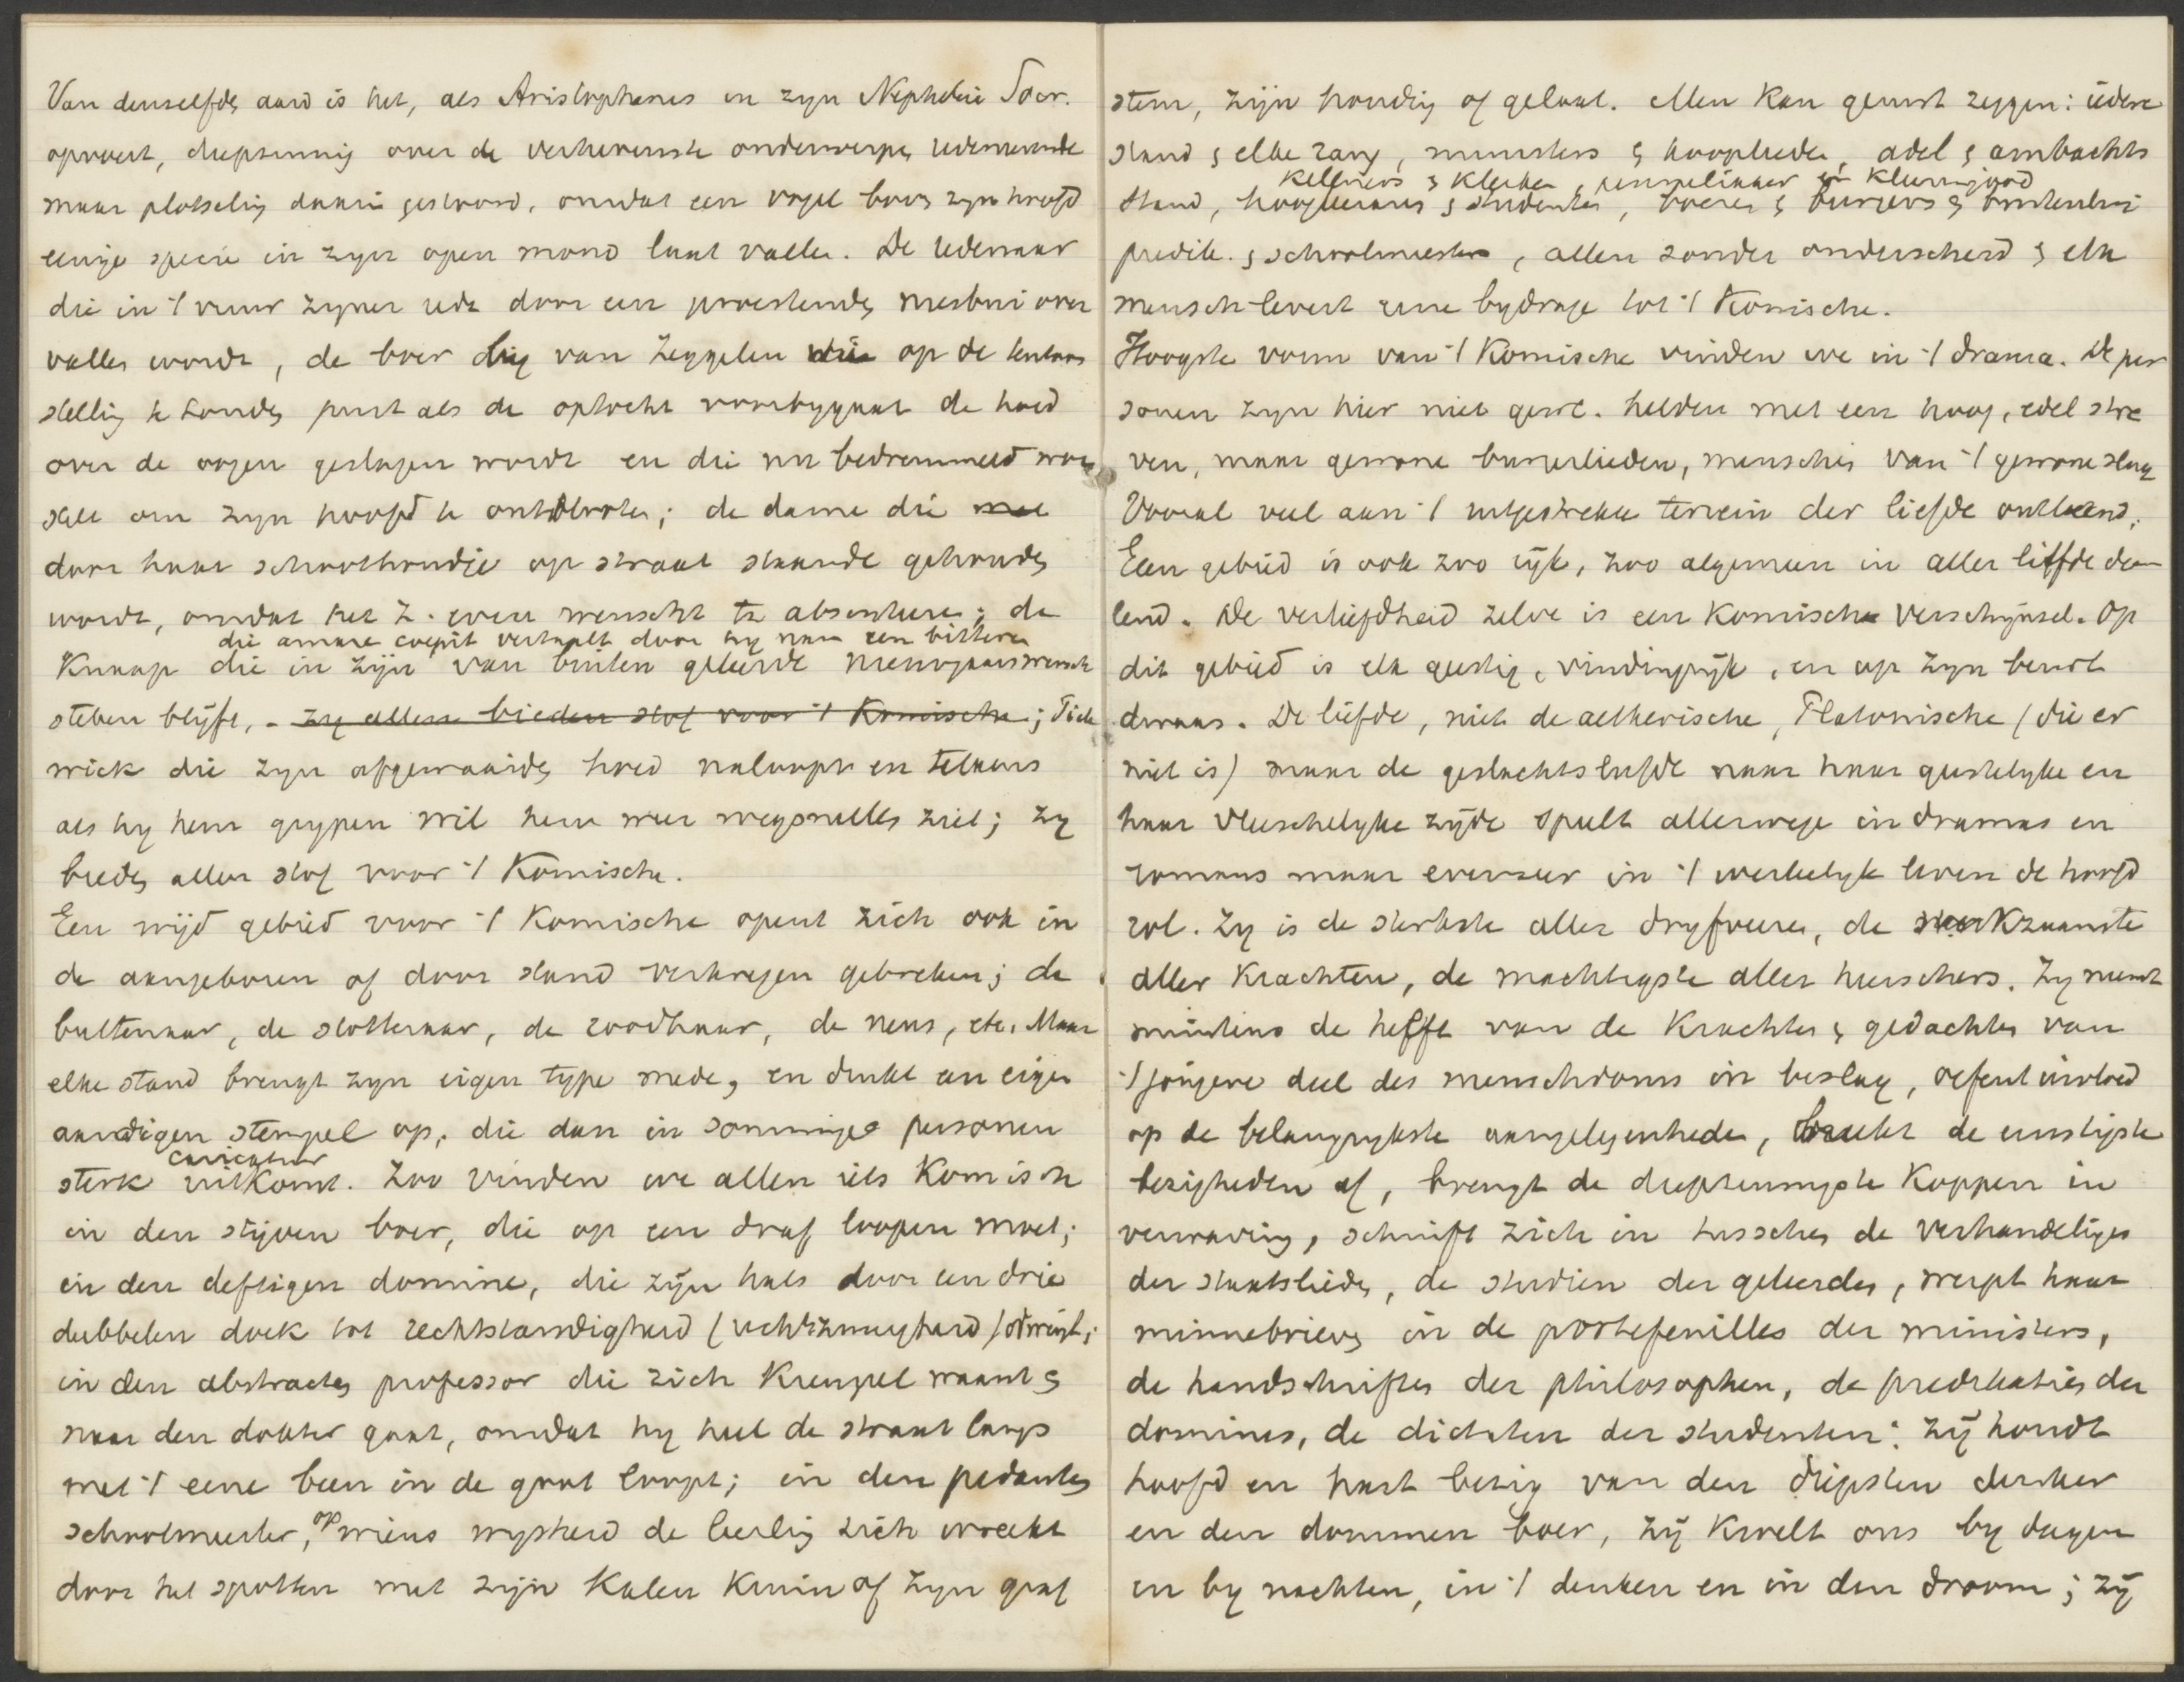 Van denzelfden aard is het, als Aristophanes in zyn Nephelai Socr.
opvoert, diepzinnig over de verhevenste onderwerpen redeneerende
maar plotseling daarin gestoord, omdat een vogel boven zyn hoofd
eenige specie in zyn open mond laat vallen. De redenaar
die in 't vuur zyner rede door een proestende niesbui over
vallen wordt, de boer die van Zeggelen op de
stelling te Londen juist als de optocht voorbygaat de hoed
over de oogen geslagen wordt en die nu bedremmeld
om zyn hoofd te ; de dame die met
door haar schoothondje op straat staande gehouden
wordt, omdat het z. even wenscht te absenteeren; de
die amare coepit vertaalt door hy nam een bittere
knaap die in zijn van buiten geleerde nieuwjaarswensch
steken blijft, - zy allen bieden stof voor 't Komische; Pick
wick die zyn afgewaaiden hoed naloopt en telkens
als hy hem grypen wil hem weer wegsnellen ziet; zy
bieden allen stof voor 't Komische.
Een wijd gebied voor 't Komische opent zich ook in
de aangeboren of door stand verkregen gebreken; de
bultenaar, de stotteraar, de roodhaar, de neus, etc. Maar
elke stand brengt zyn eigen type mede, en drukt een eigen
aardigen stempel op, die dan in sommige personen
caricatuur
sterk uitkomt. Zoo vinden we allen iets Komisch
in den stijven boer, die op een draf loopen moet;
in den deftigen domine, die zijn hals door een drie
dubbelen doek tot rechtstandigheid (rechtzinnigheid) dwingt;
in den abstracten professor die zich Kreupel waant &
naar den dokter gaat, omdat hy heel de straat langs
met 't eene been in de goot loopt; in den pedanten
schoolmeester, op wiens wysheid de leerling zich wreekt
door het spotten met zijn Kalen Kruin of zyn graf
stem, zijn houding of gelaat. Men kan gerust zeggen: iedere
stand & elke rang, ministers & kooplieden, adel & ambachts
Kellners & Klerken, jongelingen en Kleermgoed
stand, hoogleeraars & studenten, boeren & burgers &
predik. & schoolmeesters, allen zonder onderscheid & elk
mensch levert eene bydrage tot 't Komische.
Hoogste vorm van 't Komische vinden we in 't drama. De per
sonen zyn hier niet gew. helden met een hoog, edel stre
ven, maar gewone burgerlieden, menschen van 't gewone slag
Vooral veel aan 't uitgestrekte terrein der liefde ontleend.
Een gebied is ook zoo rijk, zoo algemeen in aller liefde dee
lend. De verliefdheid zelve is een Komisch verschijnsel. Op
dit gebied is elk geestig, vindingrijk, en op zyn beurt
dwaas. De liefde, niet de aetherische, Platonische (die er
niet is) maar de geslachtsliefde naar haar geestelyke en
haar vleeschelyke zijde speelt allerwege in dramas en
romans maar evenzeer in 't werkelyk leven de hoofd
rol. Zy is de sterkste aller dryfveeren, de werkzaamste
aller Krachten, de machtigste aller heerschers. Zy neemt
minstens de helft van de Krachten & gedachten van
't jongere deel des menschdoms in beslag, oefent invloed
op de belangrykste aangelegenheden, breekt de ernstigste
bezigheden af, brengt de diepzinnigste Koppen in
verwarring, schuift zich in tusschen de verhandelingen
der staatslieden, de studien der geleerden, werpt haar
minnebrieven in de portefeuilles der ministers,
de handschriften der philosophen, de predikaties der
domines, de dictaten der studenten: Zij houdt
hoofd en hart bezig van den diepsten denker
en den dommen boer, zij Kwelt ons by dagen
en by nachten, in 't denken en in den droom; zij